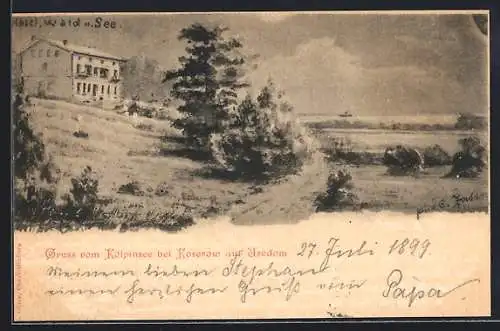 Insel, Wald u. See.
Gruss vom Kölpinsee bei Koserow auf Usedom 27. Juli 1899.
Meinem lieben Stephan
einen herzlichen Gruß vom Papa,